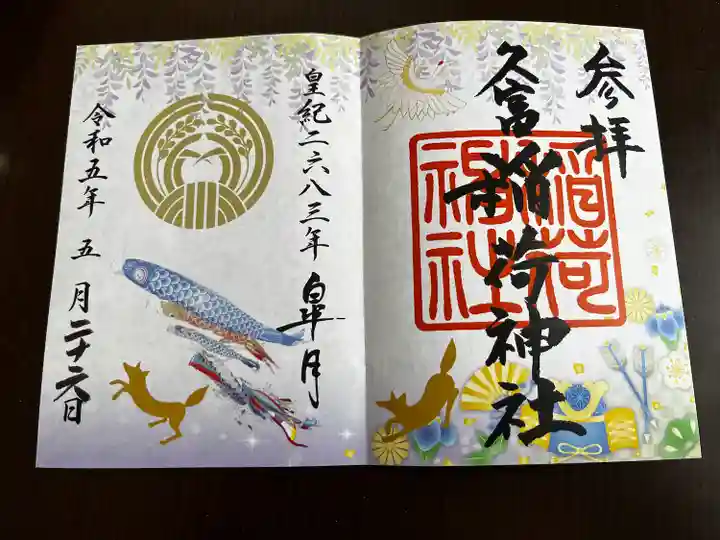 参拝
久富稲荷神社
皇紀二六八三年 皐月
令和五年 五月二十六日